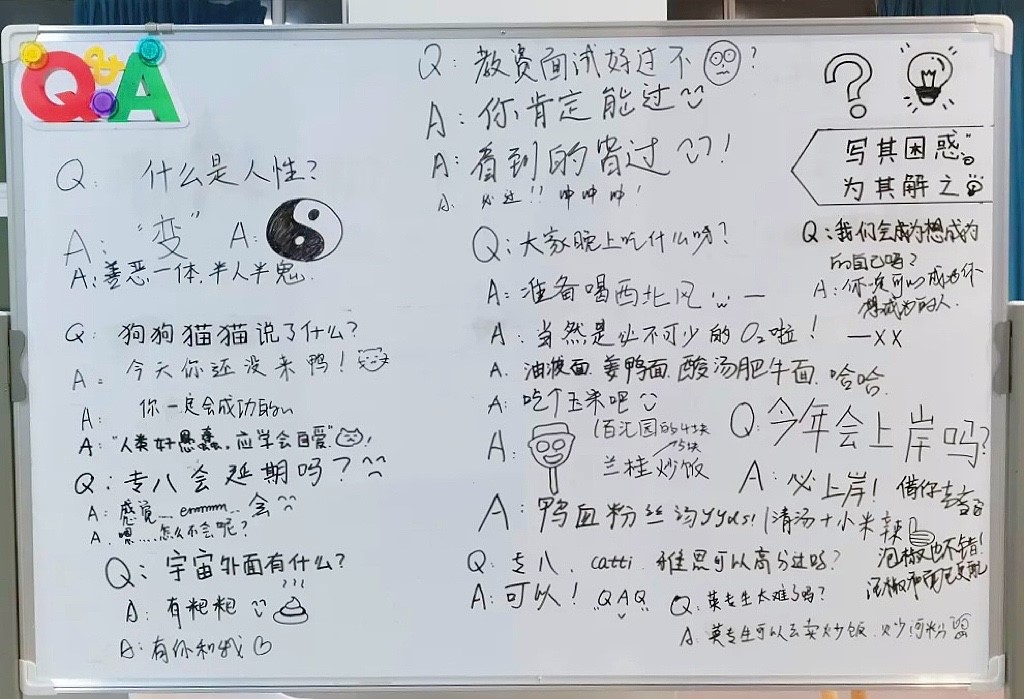 Q&A
Q: 什么是人性?
A: "变" A:
A: 善恶一体.半人半鬼.
Q: 狗狗猫猫说了什么?
A: 今天你还没来鸭!
A: 你一定会成功的
A: "人类好愚蠢,应学会自爱"
Q: 专八会延期吗?
A: 感觉... emmm... 会
A. 嗯....怎么不会呢?
Q: 宇宙外面有什么?
A: 有粑粑
A: 有你和我
Q: 教资面试好过不?
A: 你肯定能过
A: 看到的皆过!
A. 必过!! 冲冲冲!
Q: 大家晚上吃什么呀?
A: 准备喝西北风...
A: 当然是必不可少的O₂啦! —XX
A. 油泼面.姜鸭面.酸汤肥牛面.哈哈.
A: 吃个玉米吧
A: (百汇园的4块
5块
兰桂炒饭
A: 鸭血粉丝汤yyds! (清汤+小米辣
泡椒也不错!
Q: 专八、catti、雅思可以高分过吗?
A: 可以! QAQ
Q: 英专生太难了吗?
A. 英专生可以去卖炒饭、炒河粉
?
写其困惑
为其解之
Q: 我们会成为想成为
的自己吗?
A: 你一定可以成为你
想成为的人.
Q: 今年会上岸吗?
A: 必上岸! 借你吉言